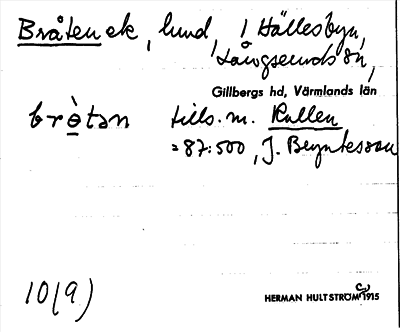 Bråten ek, lund, i Hällesbyn,
Långserudsön,
Gillbergs hd, Värmlands län
brètan tills. m. Kullen
= 87:500, J. Beyntesson
10(9)
HERMAN HULTSTRÖM 1915